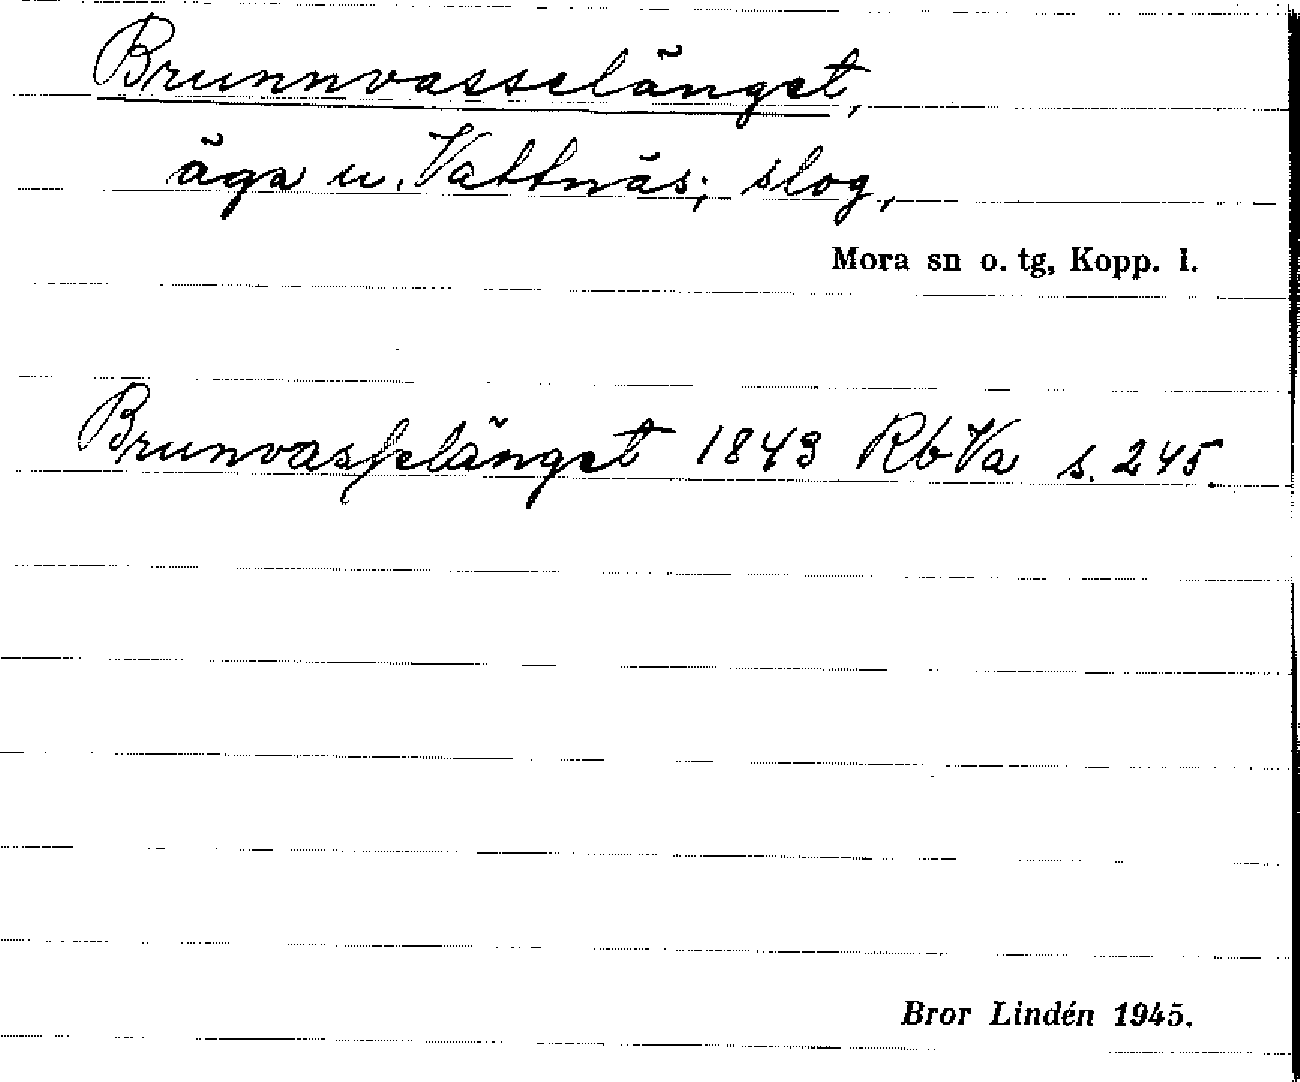 Brunnvasselänget,
äga u. Vattnäs; slog,
Mora sn o. tg, Kopp. l.
Brunvasselänget 1843 RbVa s. 245.
Bror Lindén 1945.